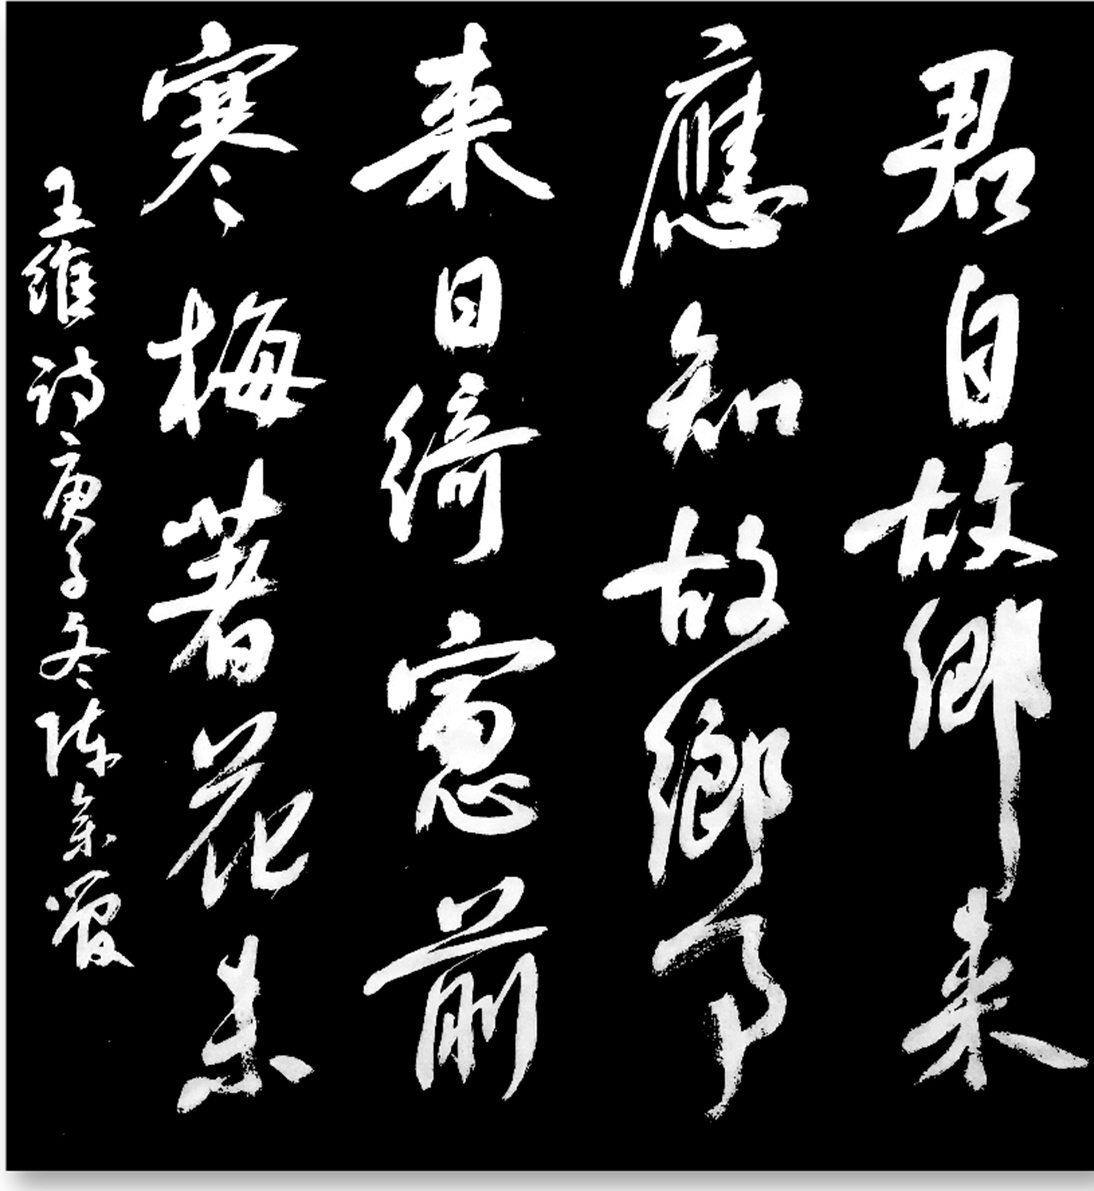 君自故鄉来
應知故鄉事
来日綺窓前
寒梅著花未
王維詩庚子冬陳